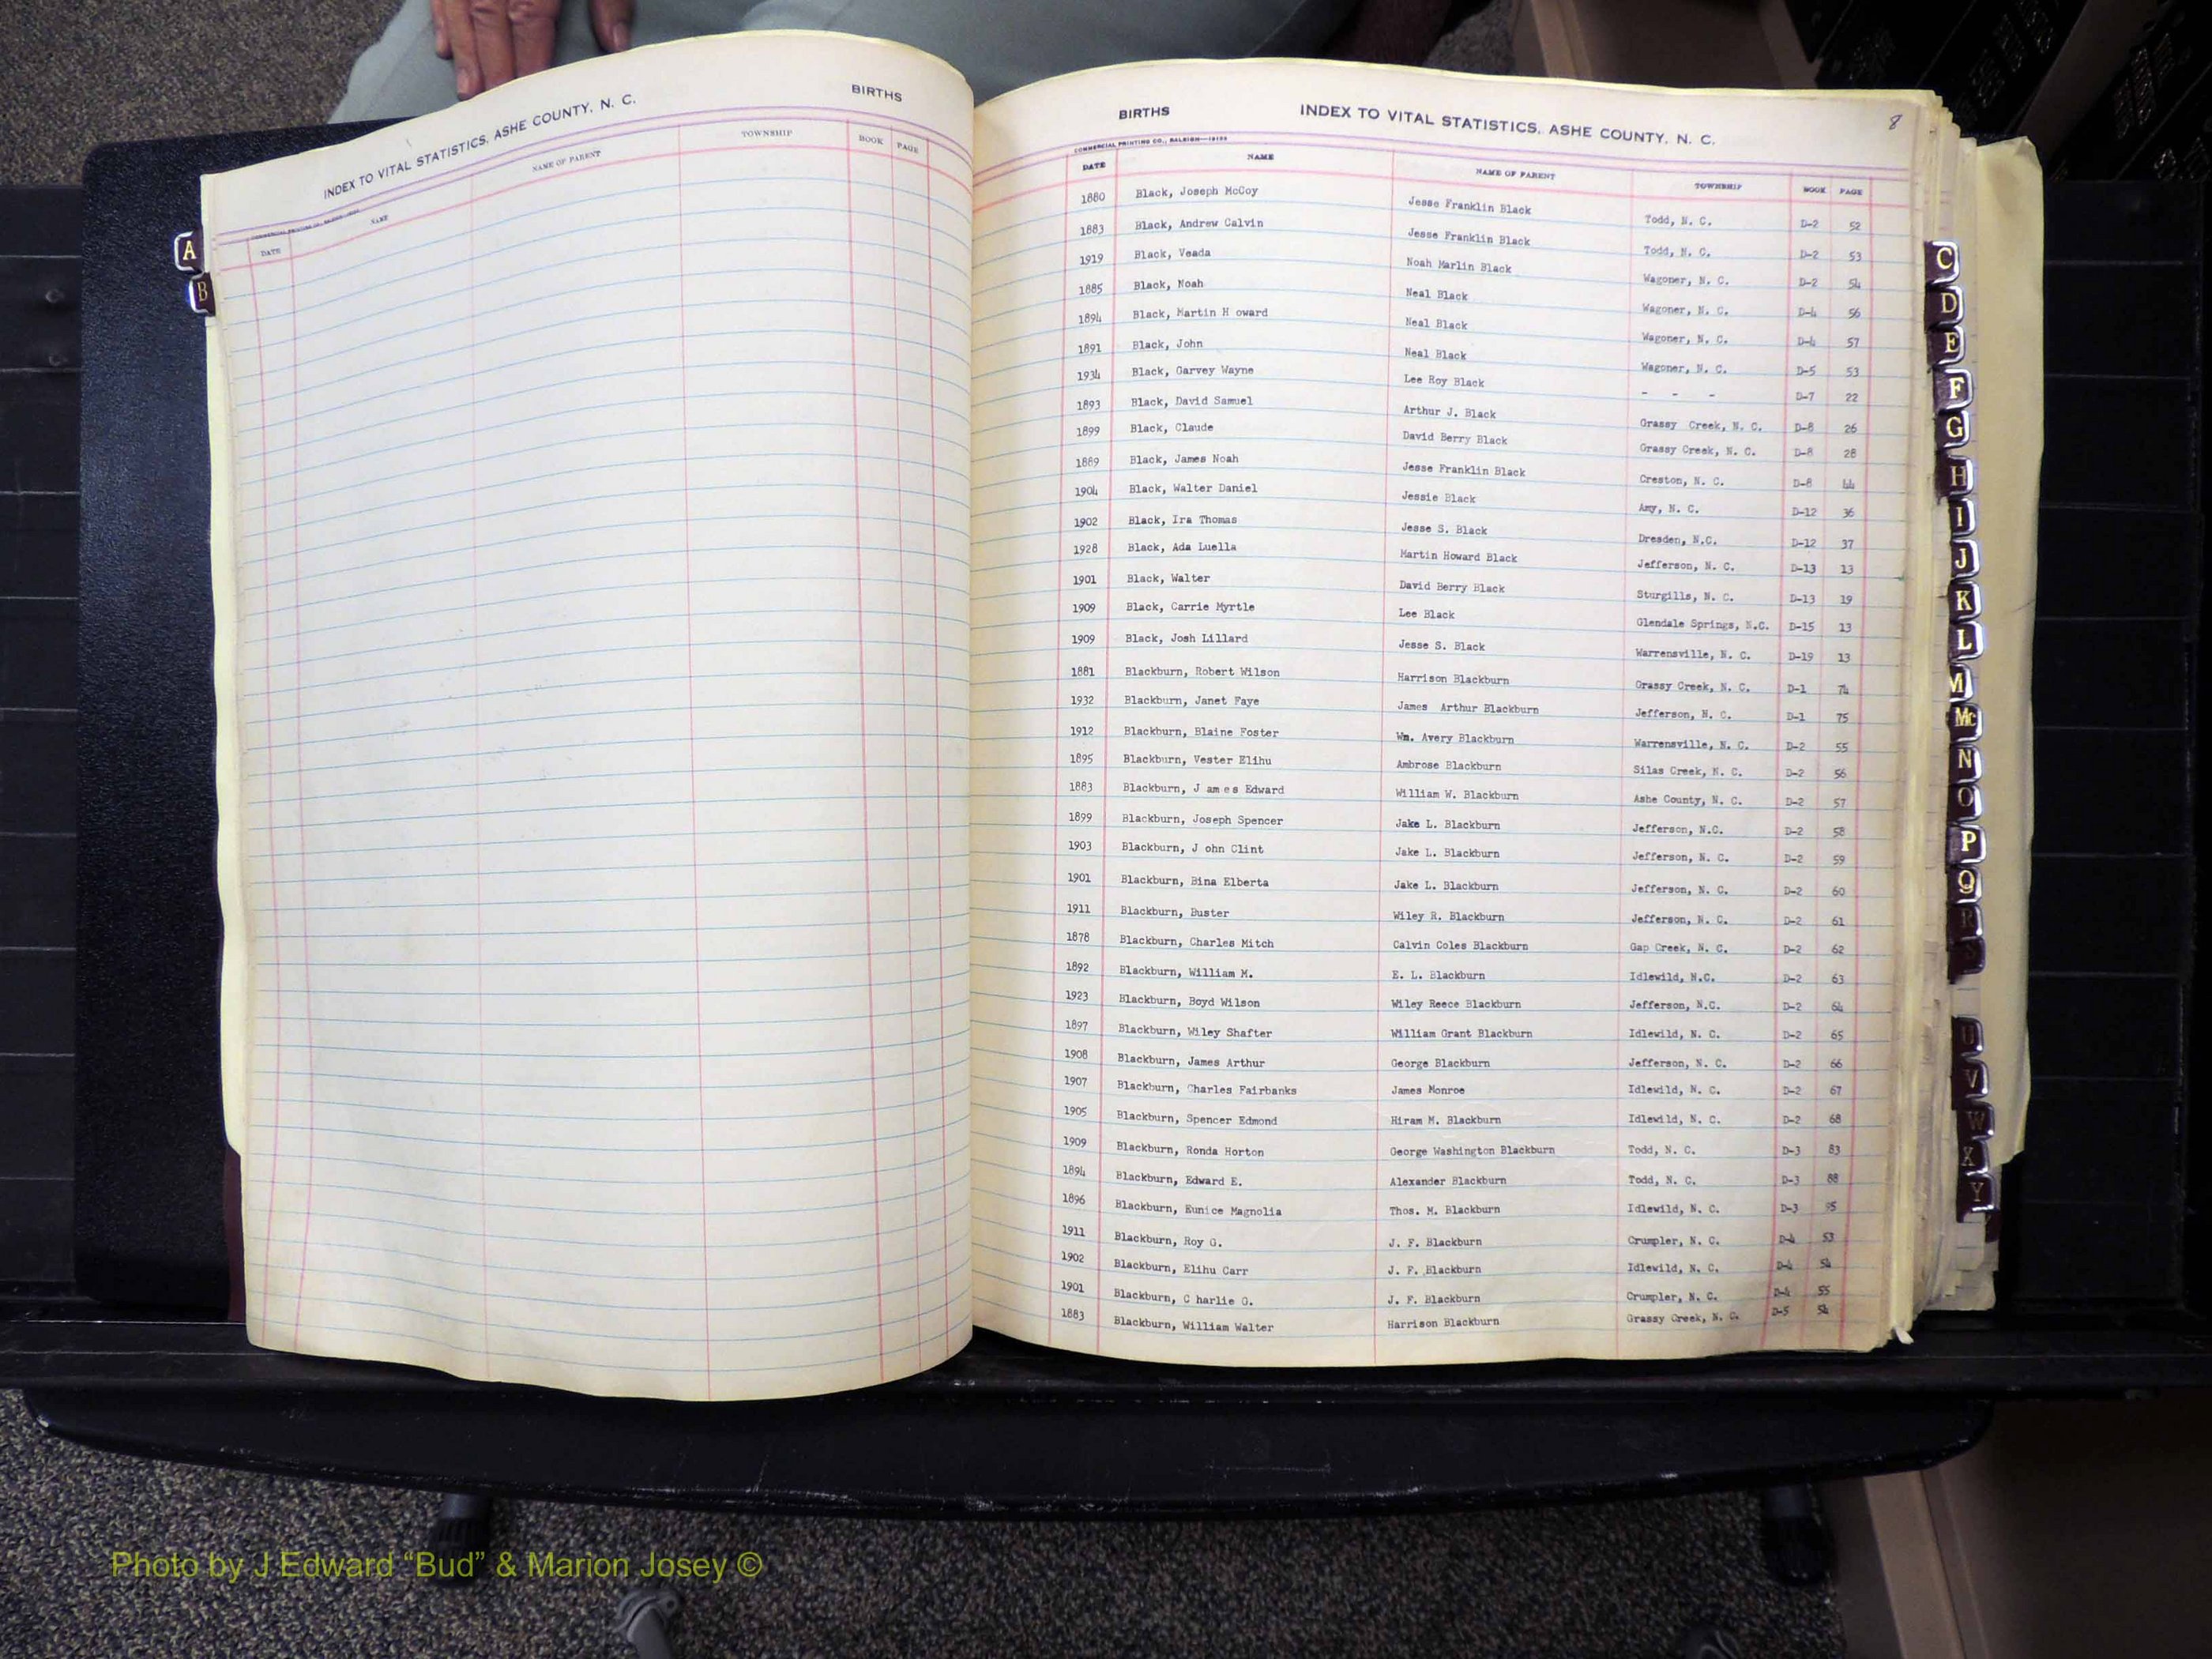 INDEX TO VITAL STATISTICS, ASHE COUNTY, N. C. BIRTHS
DATE NAME NAME OF PARENT TOWNSHIP BOOK PAGE
A
B
8
BIRTHS INDEX TO VITAL STATISTICS, ASHE COUNTY, N. C.
COMMERCIAL PRINTING CO., RALEIGH
DATE NAME NAME OF PARENT TOWNSHIP BOOK PAGE
1880 Black, Joseph McCoy Jesse Franklin Black Todd, N. C. D-2 52
1883 Black, Andrew Calvin Jesse Franklin Black Todd, N. C. D-2 53
1919 Black, Veada Noah Marlin Black Wagoner, N. C. D-2 54
1885 Black, Noah Neal Black Wagoner, N. C. D-4 56
1894 Black, Martin H oward Neal Black Wagoner, N. C. D-4 57
1891 Black, John Neal Black Wagoner, N. C. D-5 53
1934 Black, Garvey Wayne Lee Roy Black - - - D-7 22
1893 Black, David Samuel Arthur J. Black Grassy Creek, N. C. D-8 26
1899 Black, Claude David Berry Black Grassy Creek, N. C. D-8 28
1889 Black, James Noah Jesse Franklin Black Creston, N. C. D-8 44
1904 Black, Walter Daniel Jessie Black Amy, N. C. D-12 36
1902 Black, Ira Thomas Jesse S. Black Dresden, N.C. D-12 37
1928 Black, Ada Luella Martin Howard Black Jefferson, N. C. D-13 13
1901 Black, Walter David Berry Black Sturgills, N. C. D-13 19
1909 Black, Carrie Myrtle Lee Black Glendale Springs, N.C. D-15 13
1909 Black, Josh Lillard Jesse S. Black Warrensville, N. C. D-19 13
1881 Blackburn, Robert Wilson Harrison Blackburn Grassy Creek, N. C. D-1 74
1932 Blackburn, Janet Faye James Arthur Blackburn Jefferson, N. C. D-1 75
1912 Blackburn, Blaine Foster Wm. Avery Blackburn Warrensville, N. C. D-2 55
1895 Blackburn, Vester Elihu Ambrose Blackburn Silas Creek, N. C. D-2 56
1883 Blackburn, J am e s Edward William W. Blackburn Ashe County, N. C. D-2 57
1899 Blackburn, Joseph Spencer Jake L. Blackburn Jefferson, N.C. D-2 58
1903 Blackburn, J ohn Clint Jake L. Blackburn Jefferson, N. C. D-2 59
1901 Blackburn, Bina Elberta Jake L. Blackburn Jefferson, N. C. D-2 60
1911 Blackburn, Buster Wiley R. Blackburn Jefferson, N. C. D-2 61
1878 Blackburn, Charles Mitch Calvin Coles Blackburn Gap Creek, N. C. D-2 62
1892 Blackburn, William M. E. L. Blackburn Idlewild, N.C. D-2 63
1923 Blackburn, Boyd Wilson Wiley Reece Blackburn Jefferson, N.C. D-2 64
1897 Blackburn, Wiley Shafter William Grant Blackburn Idlewild, N. C. D-2 65
1908 Blackburn, James Arthur George Blackburn Jefferson, N. C. D-2 66
1907 Blackburn, Charles Fairbanks James Monroe Idlewild, N. C. D-2 67
1905 Blackburn, Spencer Edmond Hiram M. Blackburn Idlewild, N. C. D-2 68
1909 Blackburn, Ronda Horton George Washington Blackburn Todd, N. C. D-3 83
1894 Blackburn, Edward E. Alexander Blackburn Todd, N. C. D-3 88
1896 Blackburn, Eunice Magnolia Thos. M. Blackburn Idlewild, N. C. D-3 95
1911 Blackburn, Roy G. J. F. Blackburn Crumpler, N. C. D-4 53
1902 Blackburn, Elihu Carr J. F. Blackburn Idlewild, N. C. D-4 54
1901 Blackburn, C harlie G. J. F. Blackburn Crumpler, N. C. D-4 55
1883 Blackburn, William Walter Harrison Blackburn Grassy Creek, N. C. D-5 54
C
D
E
F
G
H
I
J
K
L
M
Mc
N
O
P
Q
R
U
V
W
X
Y
Photo by J Edward “Bud” & Marion Josey ©